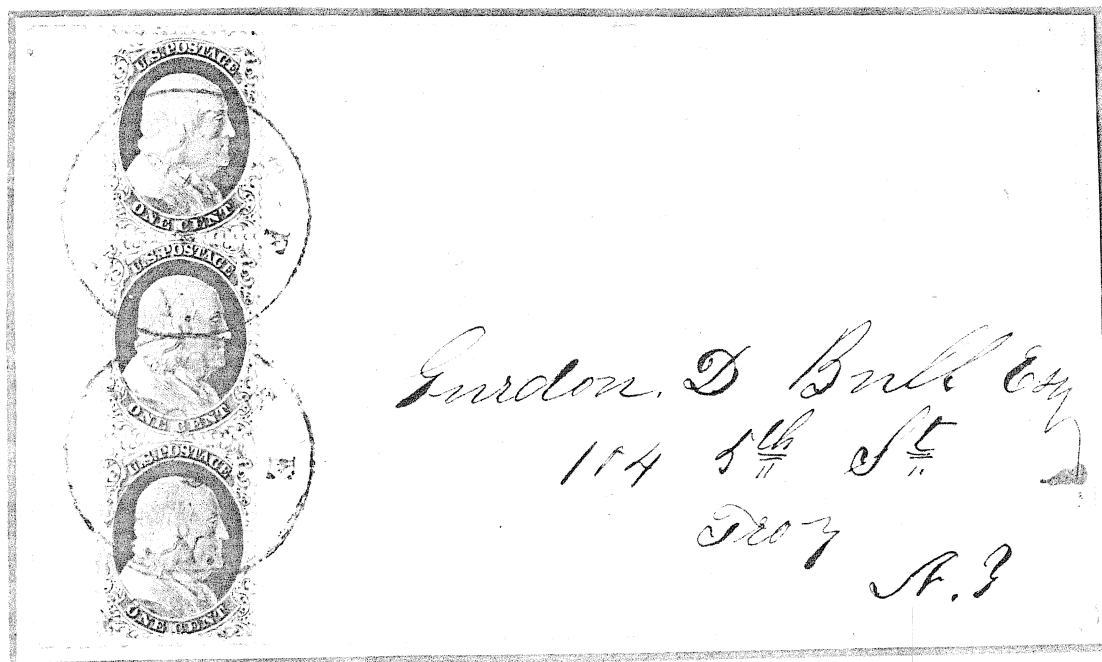 U.S. POSTAGE
ONE CENT
U.S. POSTAGE
ONE CENT
U.S. POSTAGE
ONE CENT
Gurdon. D Bull Esq
104 5th St
Troy
N.Y